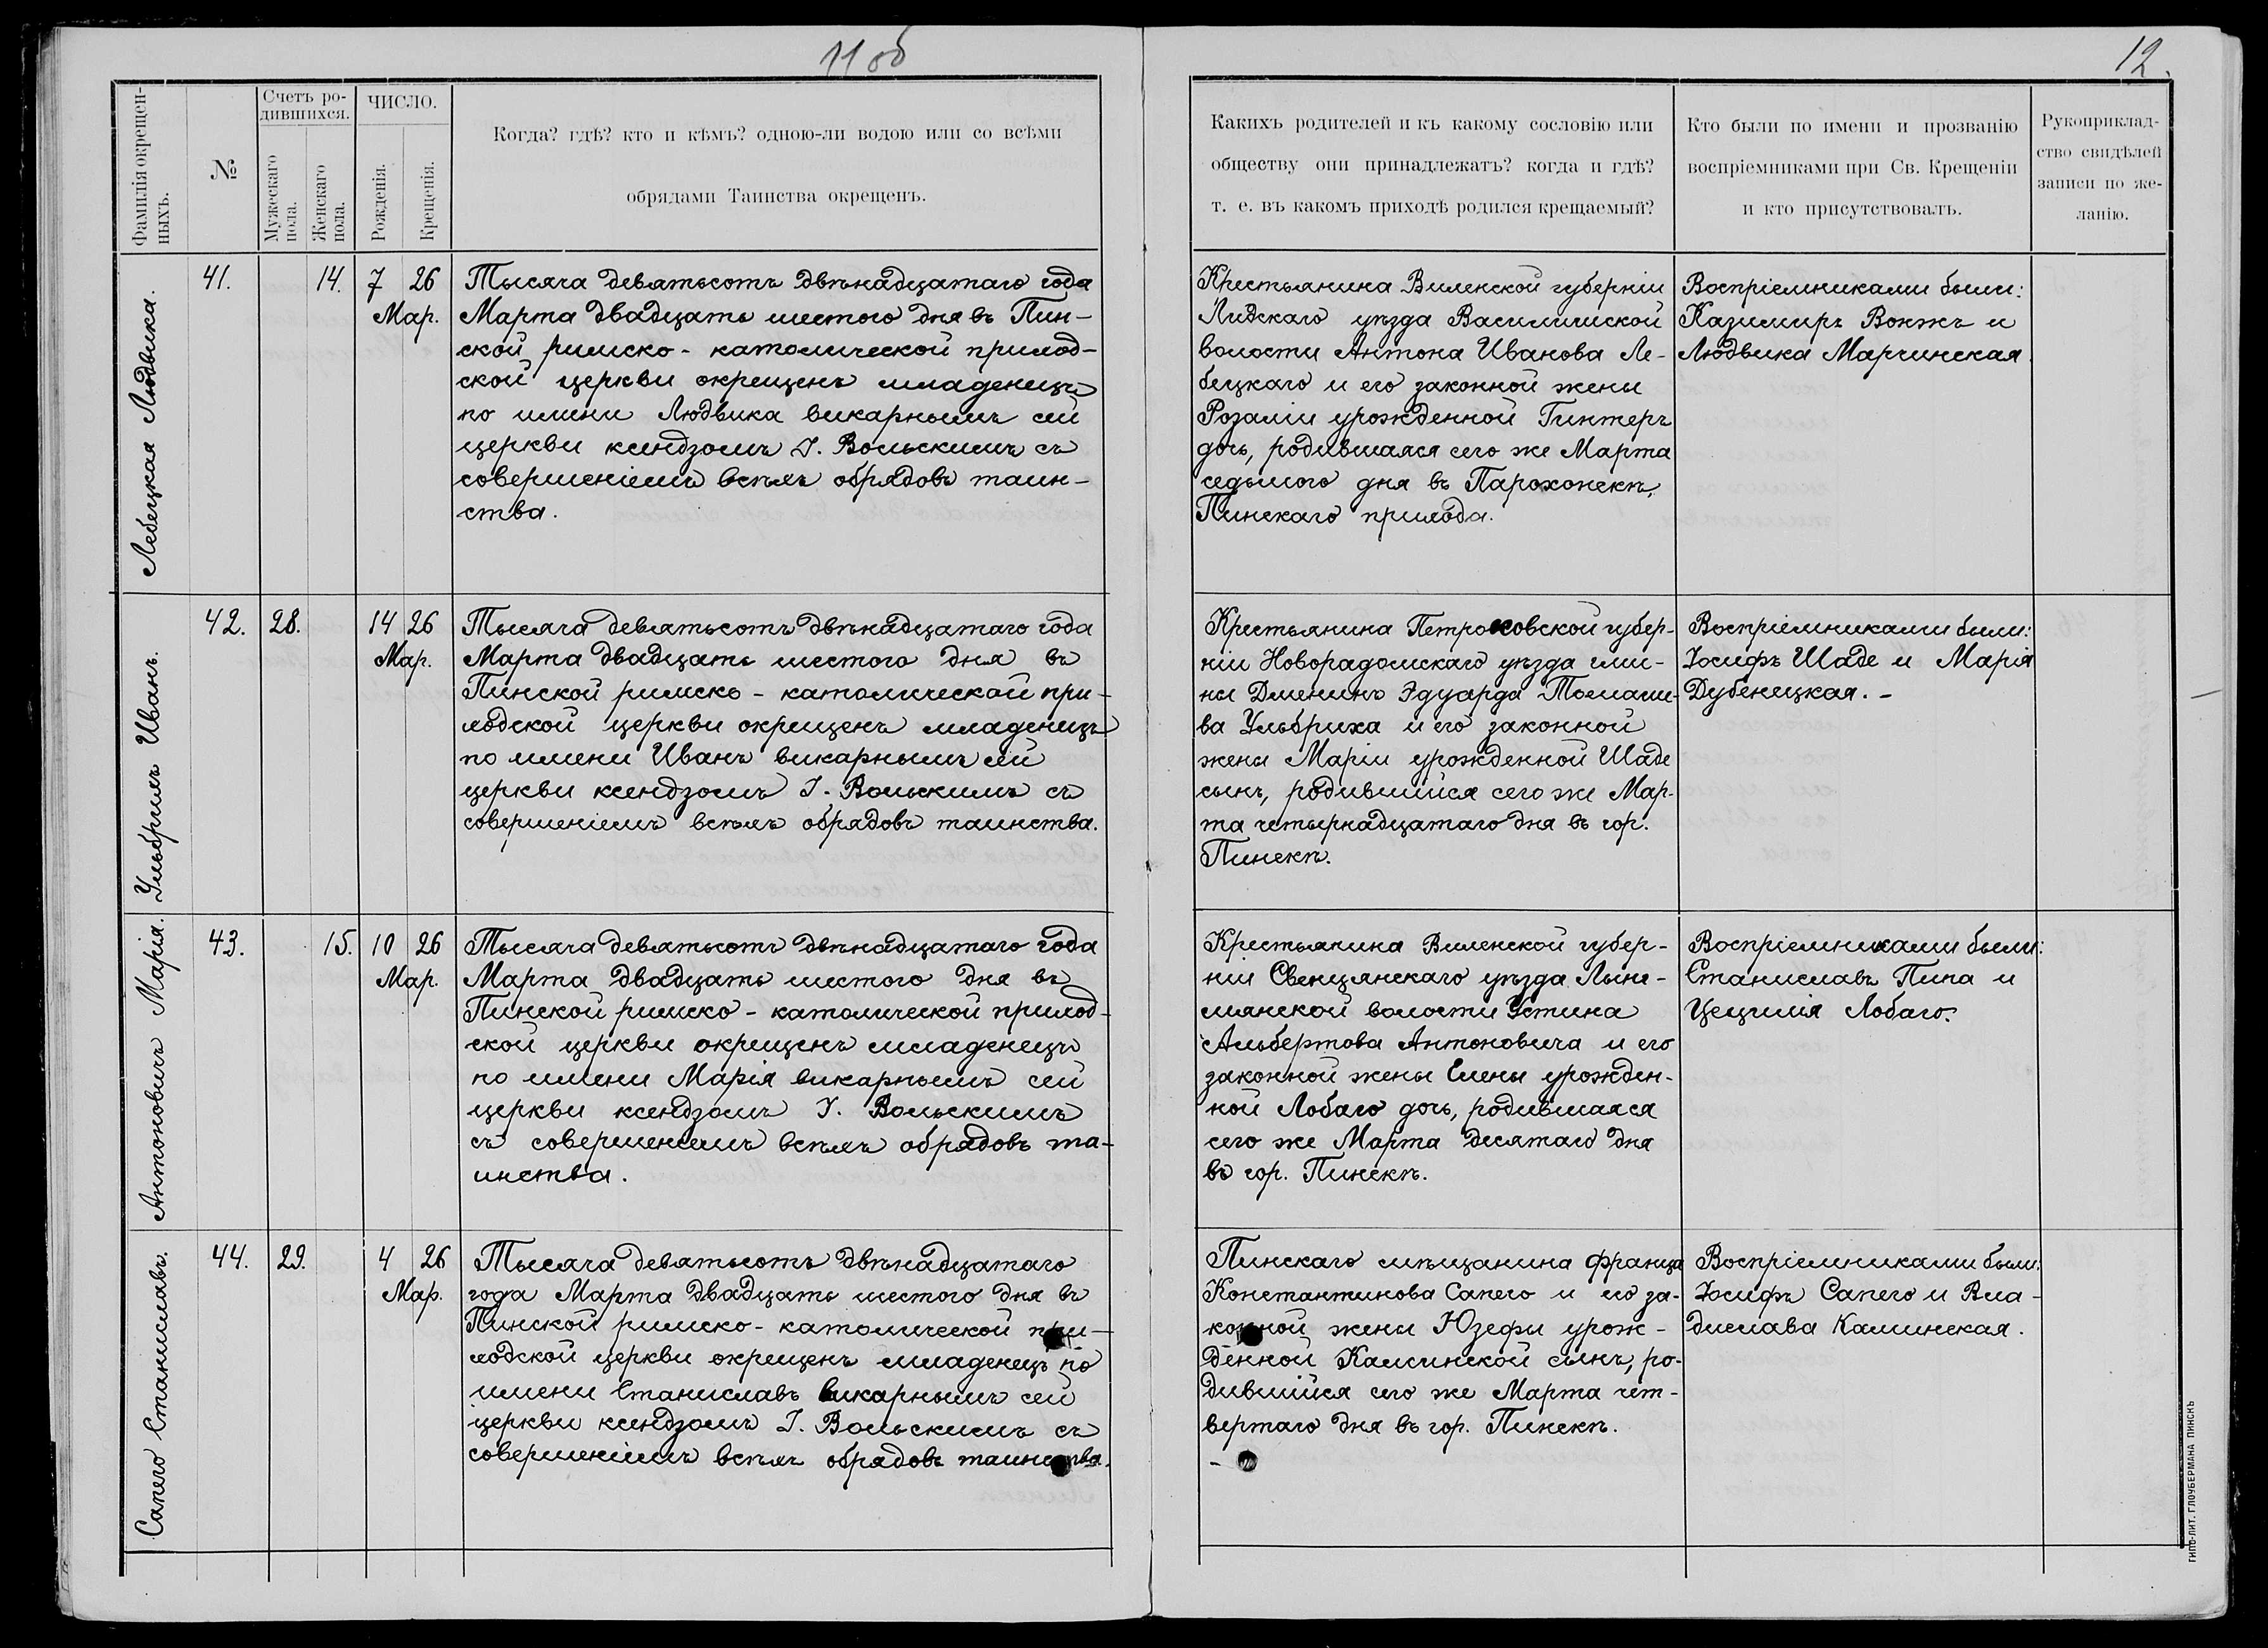 11 об
12.
Фамилія окрещен-
ныхъ.
№
Счетъ ро-
дившихся.
Мужескаго
пола.
Женскаго
пола.
ЧИСЛО.
Рожденія.
Крещенія.
Когда? гдѣ? кто и кѣмъ? одною-ли водою или со всѣми
обрядами Таинства окрещенъ.
Какихъ родителей и къ какому сословію или
обществу они принадлежатъ? когда и гдѣ?
т. е. въ какомъ приходѣ родился крещаемый?
Кто были по имени и прозванію
воспріемниками при Св. Крещеніи
и кто присутствовалъ.
Рукоприклад-
ство свидѣлей
записи по же-
ланію.
Лебецкая Людвика.
41.
14.
7 26
Мар.
Тысяча девятьсотъ двѣнадцатаго года
Марта двадцать шестого дня въ Пин-
ской римско-католической приход-
ской церкви окрещенъ младенецъ
по имени Людвика викарнымъ сей
церкви ксендзомъ І. Вольскимъ съ
совершеніемъ всѣхъ обрядовъ таин-
ства.
Крестьянина Виленской губерніи
Лидскаго уѣзда Василишской
волости Антона Иванова Ле-
бецкаго и его законной жены
Розаліи урожденной Гинтеръ
дочь, родившаяся сего же Марта
седьмого дня въ Парохонскѣ,
Пинскаго прихода.
Воспріемниками были:
Казимиръ Вонжъ и
Людвика Марчинская.
Ульбрихъ Иванъ.
42.
28.
14 26
Мар.
Тысяча девятьсотъ двѣнадцатаго года
Марта двадцать шестого дня въ
Пинской римско-католической при-
ходской церкви окрещенъ младенецъ
по имени Иванъ викарнымъ сей
церкви ксендзомъ І. Вольскимъ съ
совершеніемъ всѣхъ обрядовъ таинства.
Крестьянина Петроковской губер-
ніи Новорадомскаго уѣзда гми-
ны Дменинъ Эдуарда Томаше-
ва Ульбриха и его законной
жены Маріи урожденной Шаде
сынъ, родившійся сего же Мар-
та четырнадцатаго дня въ гор.
Пинскѣ.
Воспріемниками были:
Іосифъ Шаде и Марія
Дубенецкая. -
Антоновичъ Марія.
43.
15.
10 26
Мар.
Тысяча девятьсотъ двѣнадцатаго года
Марта двадцать шестого дня въ
Пинской римско-католической приход-
ской церкви окрещенъ младенецъ
по имени Марія викарнымъ сей
церкви ксендзомъ І. Вольскимъ
съ совершеніемъ всѣхъ обрядовъ та-
инства.
Крестьянина Виленской губер-
ніи Свенцянскаго уѣзда Лынт-
мянской волости Устина
Альбертова Антоновича и его
законной жены Елены урожден-
ной Лобаго дочь, родившаяся
сего же Марта десятаго дня
въ гор. Пинскѣ.
Воспріемниками были:
Станиславъ Пипа и
Цецилія Лобаго.
Сапего Станиславъ.
44.
29.
4 26
Мар.
Тысяча девятьсотъ двѣнадцатаго
года Марта двадцать шестого дня въ
Пинской римско-католической при-
ходской церкви окрещенъ младенецъ по
имени Станиславъ викарнымъ сей
церкви ксендзомъ І. Вольскимъ съ
совершеніемъ всѣхъ обрядовъ таинства.
Пинскаго мѣщанина Франца
Константинова Сапего и его за-
конной жены Юзефы урож-
денной Калинской сынъ, ро-
дившійся сего же Марта чет-
вертаго дня въ гор. Пинскѣ.
-
Воспріемниками были:
Іосифъ Сапего и Вла-
дислава Калинская.
ТИПО-ЛИТ. ГЛОУБЕРМАНА ПИНСКЪ